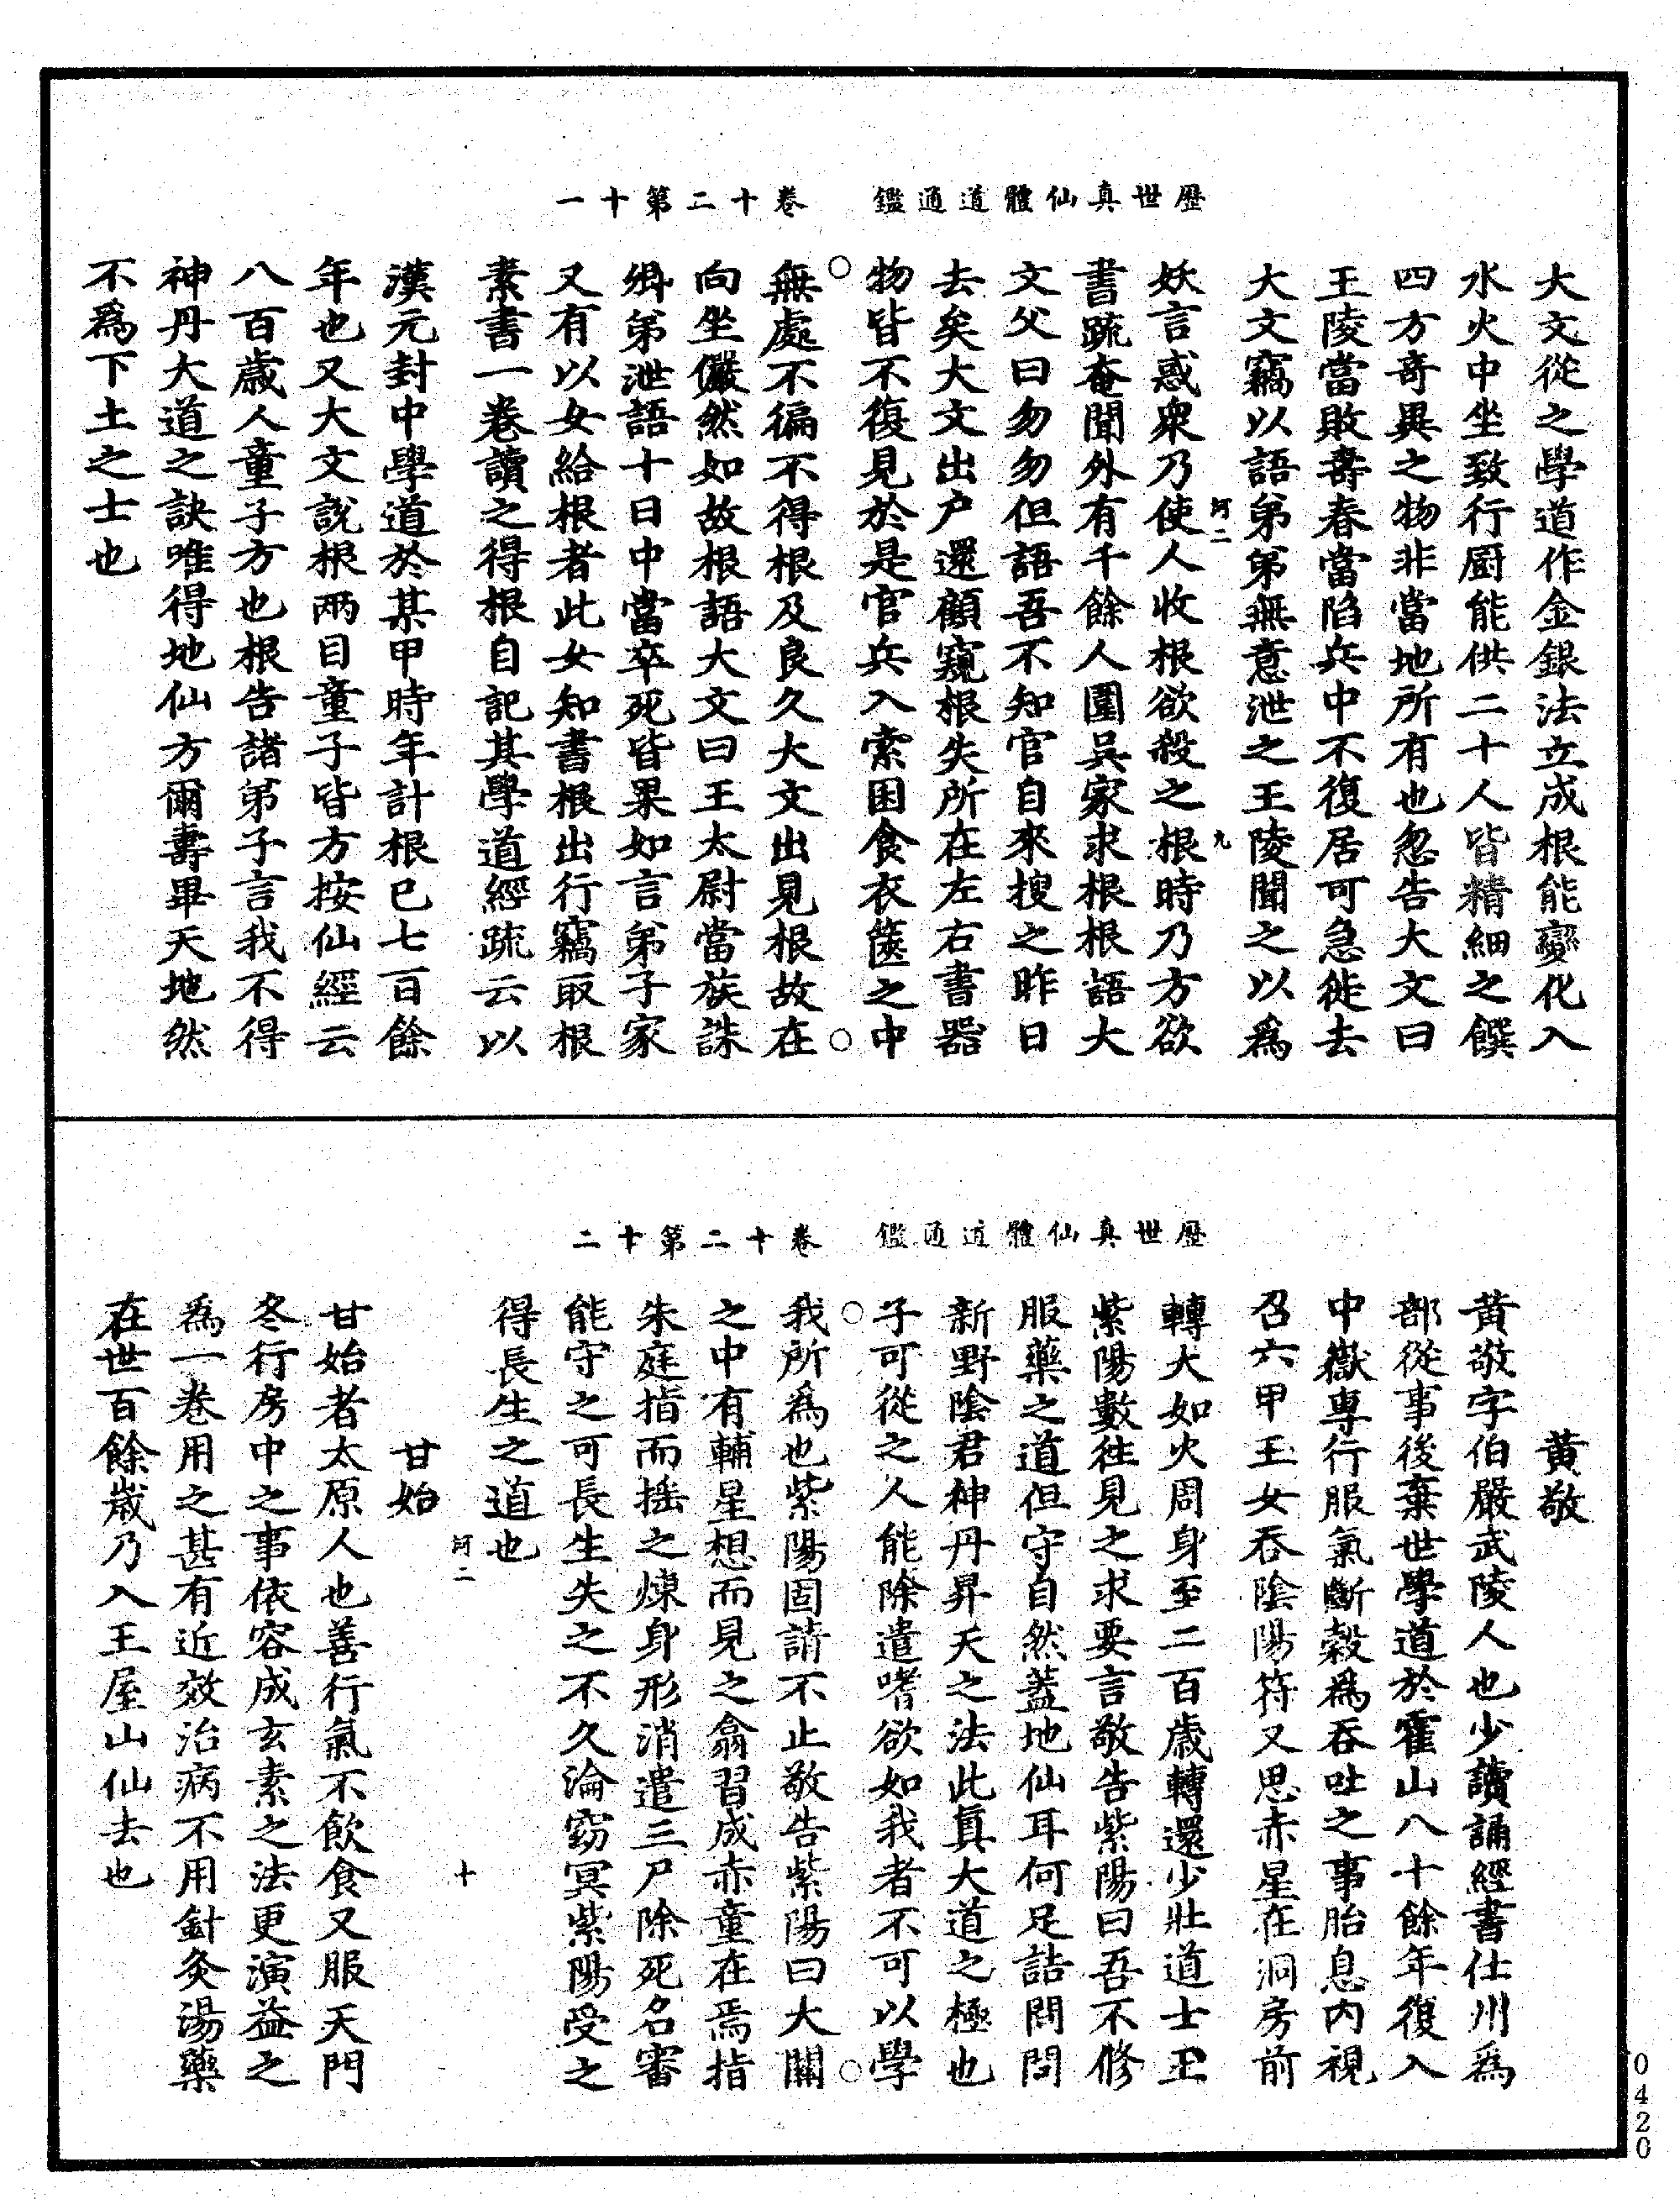 歷世真仙體道通鑑　卷十二第十一
大文從之學道作金銀法立成根能變化入
水火中坐致行厨能供二十人皆精細之饌
四方奇異之物非當地所有也忽告大文曰
王陵當敗壽春當陷兵中不復居可急徙去
大文竊以語弟弟無意泄之王陵聞之以爲
阿二　九
妖言惑衆乃使人收根欲殺之根時乃方欲
書疏奄聞外有千餘人圍吳家求根根語大
文父曰勿勿但語吾不知官自來搜之昨日
去矣大文出户還顧窺根失所在左右書器
物皆不復見於是官兵入索困食衣篋之中
無處不徧不得根及良久大文出見根故在
向坐儼然如故根語大文曰王太尉當族誅
卿弟泄語十日中當卒死皆果如言弟子家
又有以女給根者此女知書根出行竊取根
素書一卷讀之得根自記其學道經疏云以
漢元封中學道於某甲時年計根已七百餘
年也又大文說根兩目童子皆方按仙經云
八百歲人童子方也根告諸弟子言我不得
神丹大道之訣唯得地仙方爾壽畢天地然
不爲下土之士也
歷世真仙體道通鑑　卷十二第十二
黃敬
黃敬字伯嚴武陵人也少讀誦經書仕州爲
部從事後棄世學道於霍山八十餘年復入
中嶽專行服氣斷穀爲吞吐之事胎息內視
召六甲玉女吞陰陽符又思赤星在洞房前
轉大如火周身至二百歲轉還少壯道士王
紫陽數往見之求要言敬告紫陽曰吾不修
服藥之道但守自然蓋地仙耳何足詰問問
新野陰君神丹昇天之法此真大道之極也
子可從之人能除遣嗜欲如我者不可以學
我所爲也紫陽固請不止敬告紫陽曰大關
之中有輔星想而見之翕習成赤童在焉指
朱庭指而搖之煉身形消遣三尸除死名審
能守之可長生失之不久淪窈冥紫陽受之
得長生之道也
阿二　十
甘始
甘始者太原人也善行氣不飲食又服天門
冬行房中之事依容成玄素之法更演益之
爲一卷用之甚有近效治病不用針灸湯藥
在世百餘歲乃入王屋山仙去也
0420